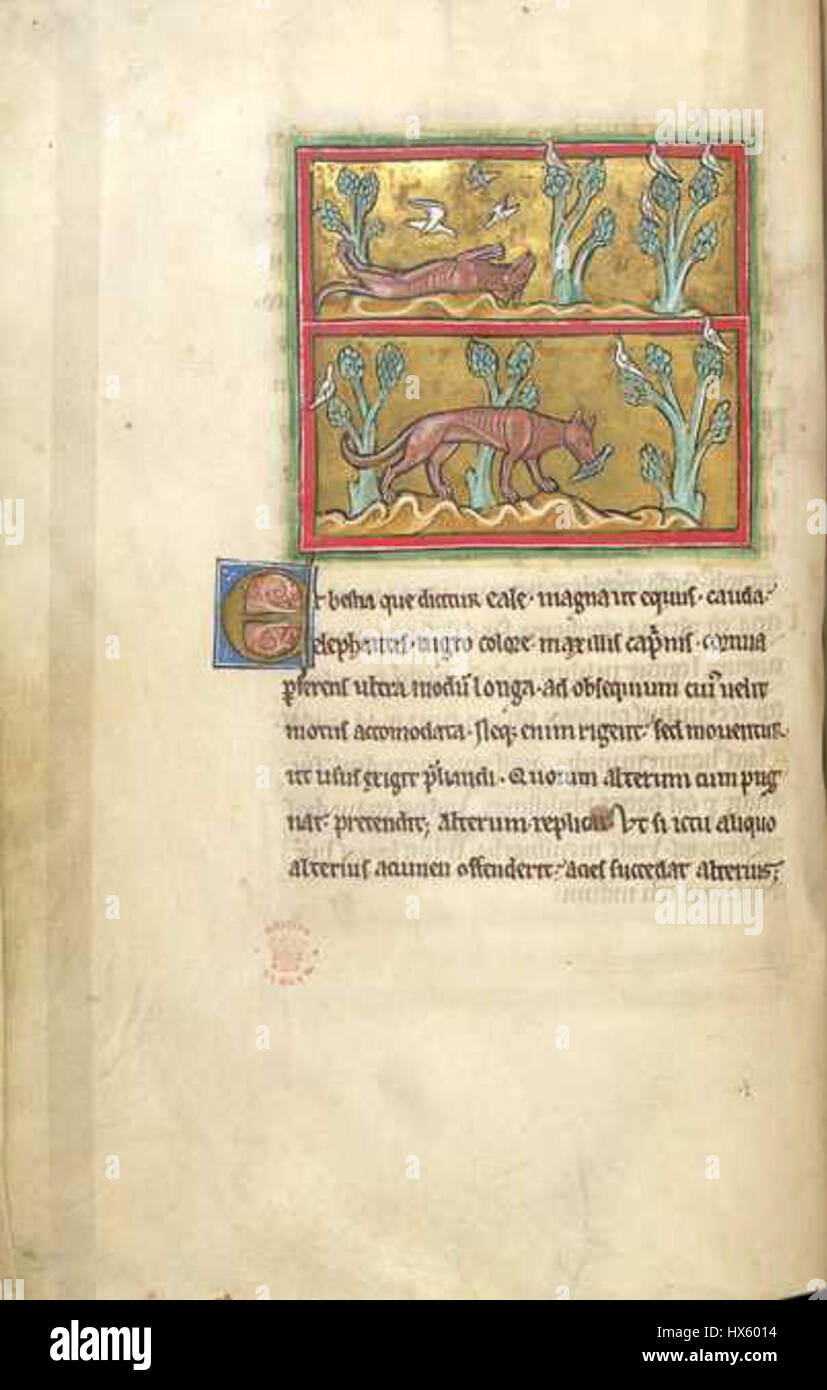 Est bestia que dicitur eale. magna ut equus. cauda
elephantis. nigro colore. maxillis capͥnis. cornua
p̱ferens ultra modū longa. ad obsequium cuiꝰ uelit
motus accomodata. Neqꝫ enim rigent. sed mouentur.
ut usus exigit p̃liandi. Quorum alterum cum pug
nat pretendit; alterum replicat. Vt si ictu aliquo
alterius acumen offenderit. acies succedat alterius;
alamy
alamy
Image ID: HX6014
www.alamy.com